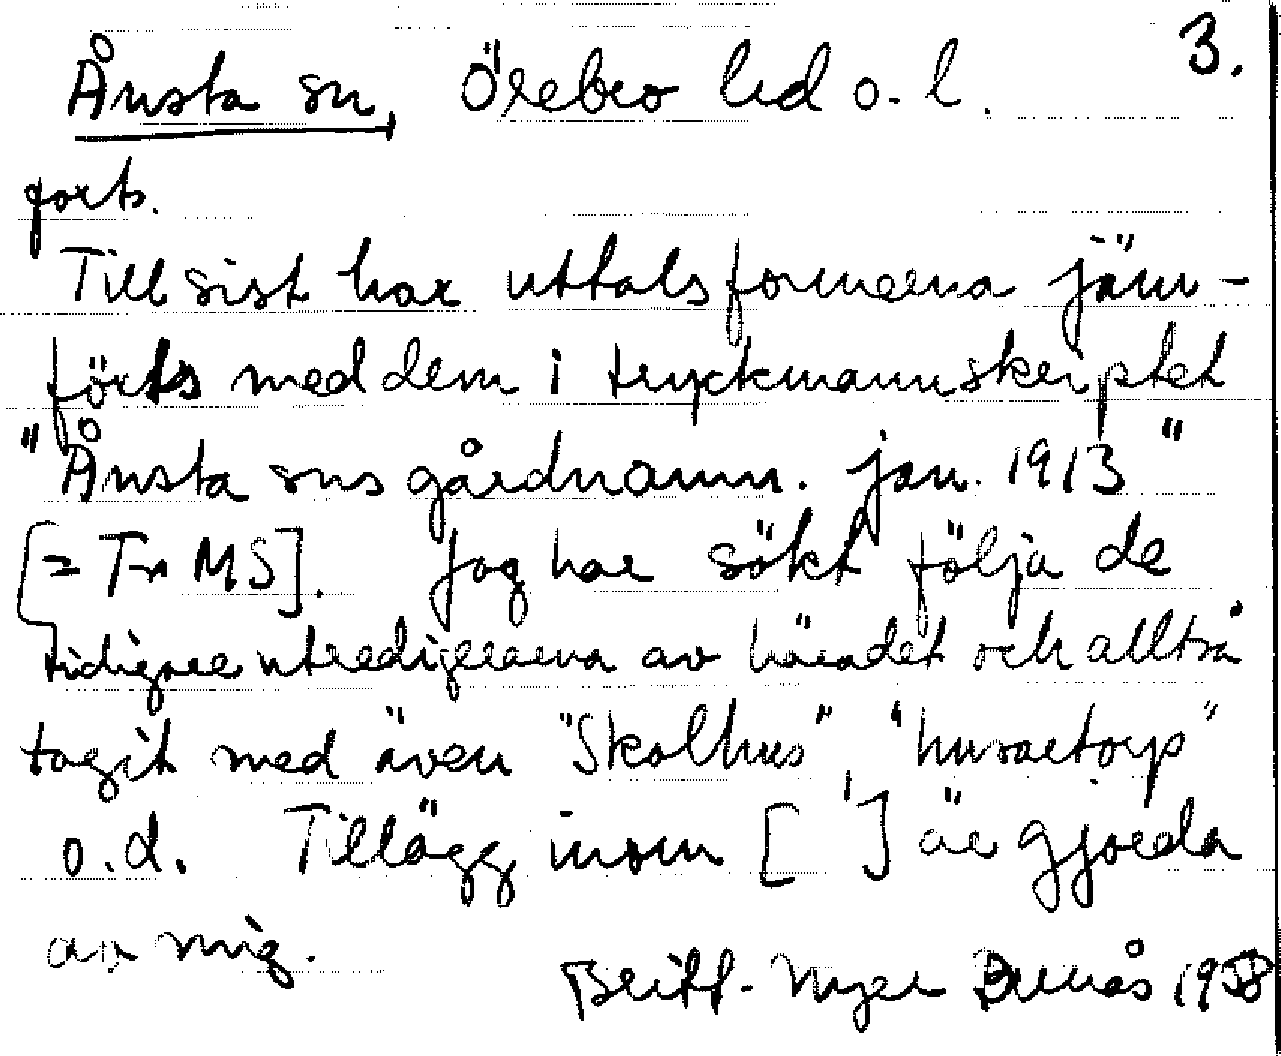 3.
Ånsta sn, Örebro hd o. l.
forts.
Till sist har uttalsformerna jäm-
förts med dem i tryckmannuskriptet
"Ånsta sns gårdnamn. jan. 1913"
[= Tr MS]. Jag har sökt följa de
tidigare utredigerarna av häradet och alltså
tagit med även "Skolhus", "husartorp"
o.d. Tillägg inom [ ] är gjorda
av mig.
Britt- 19